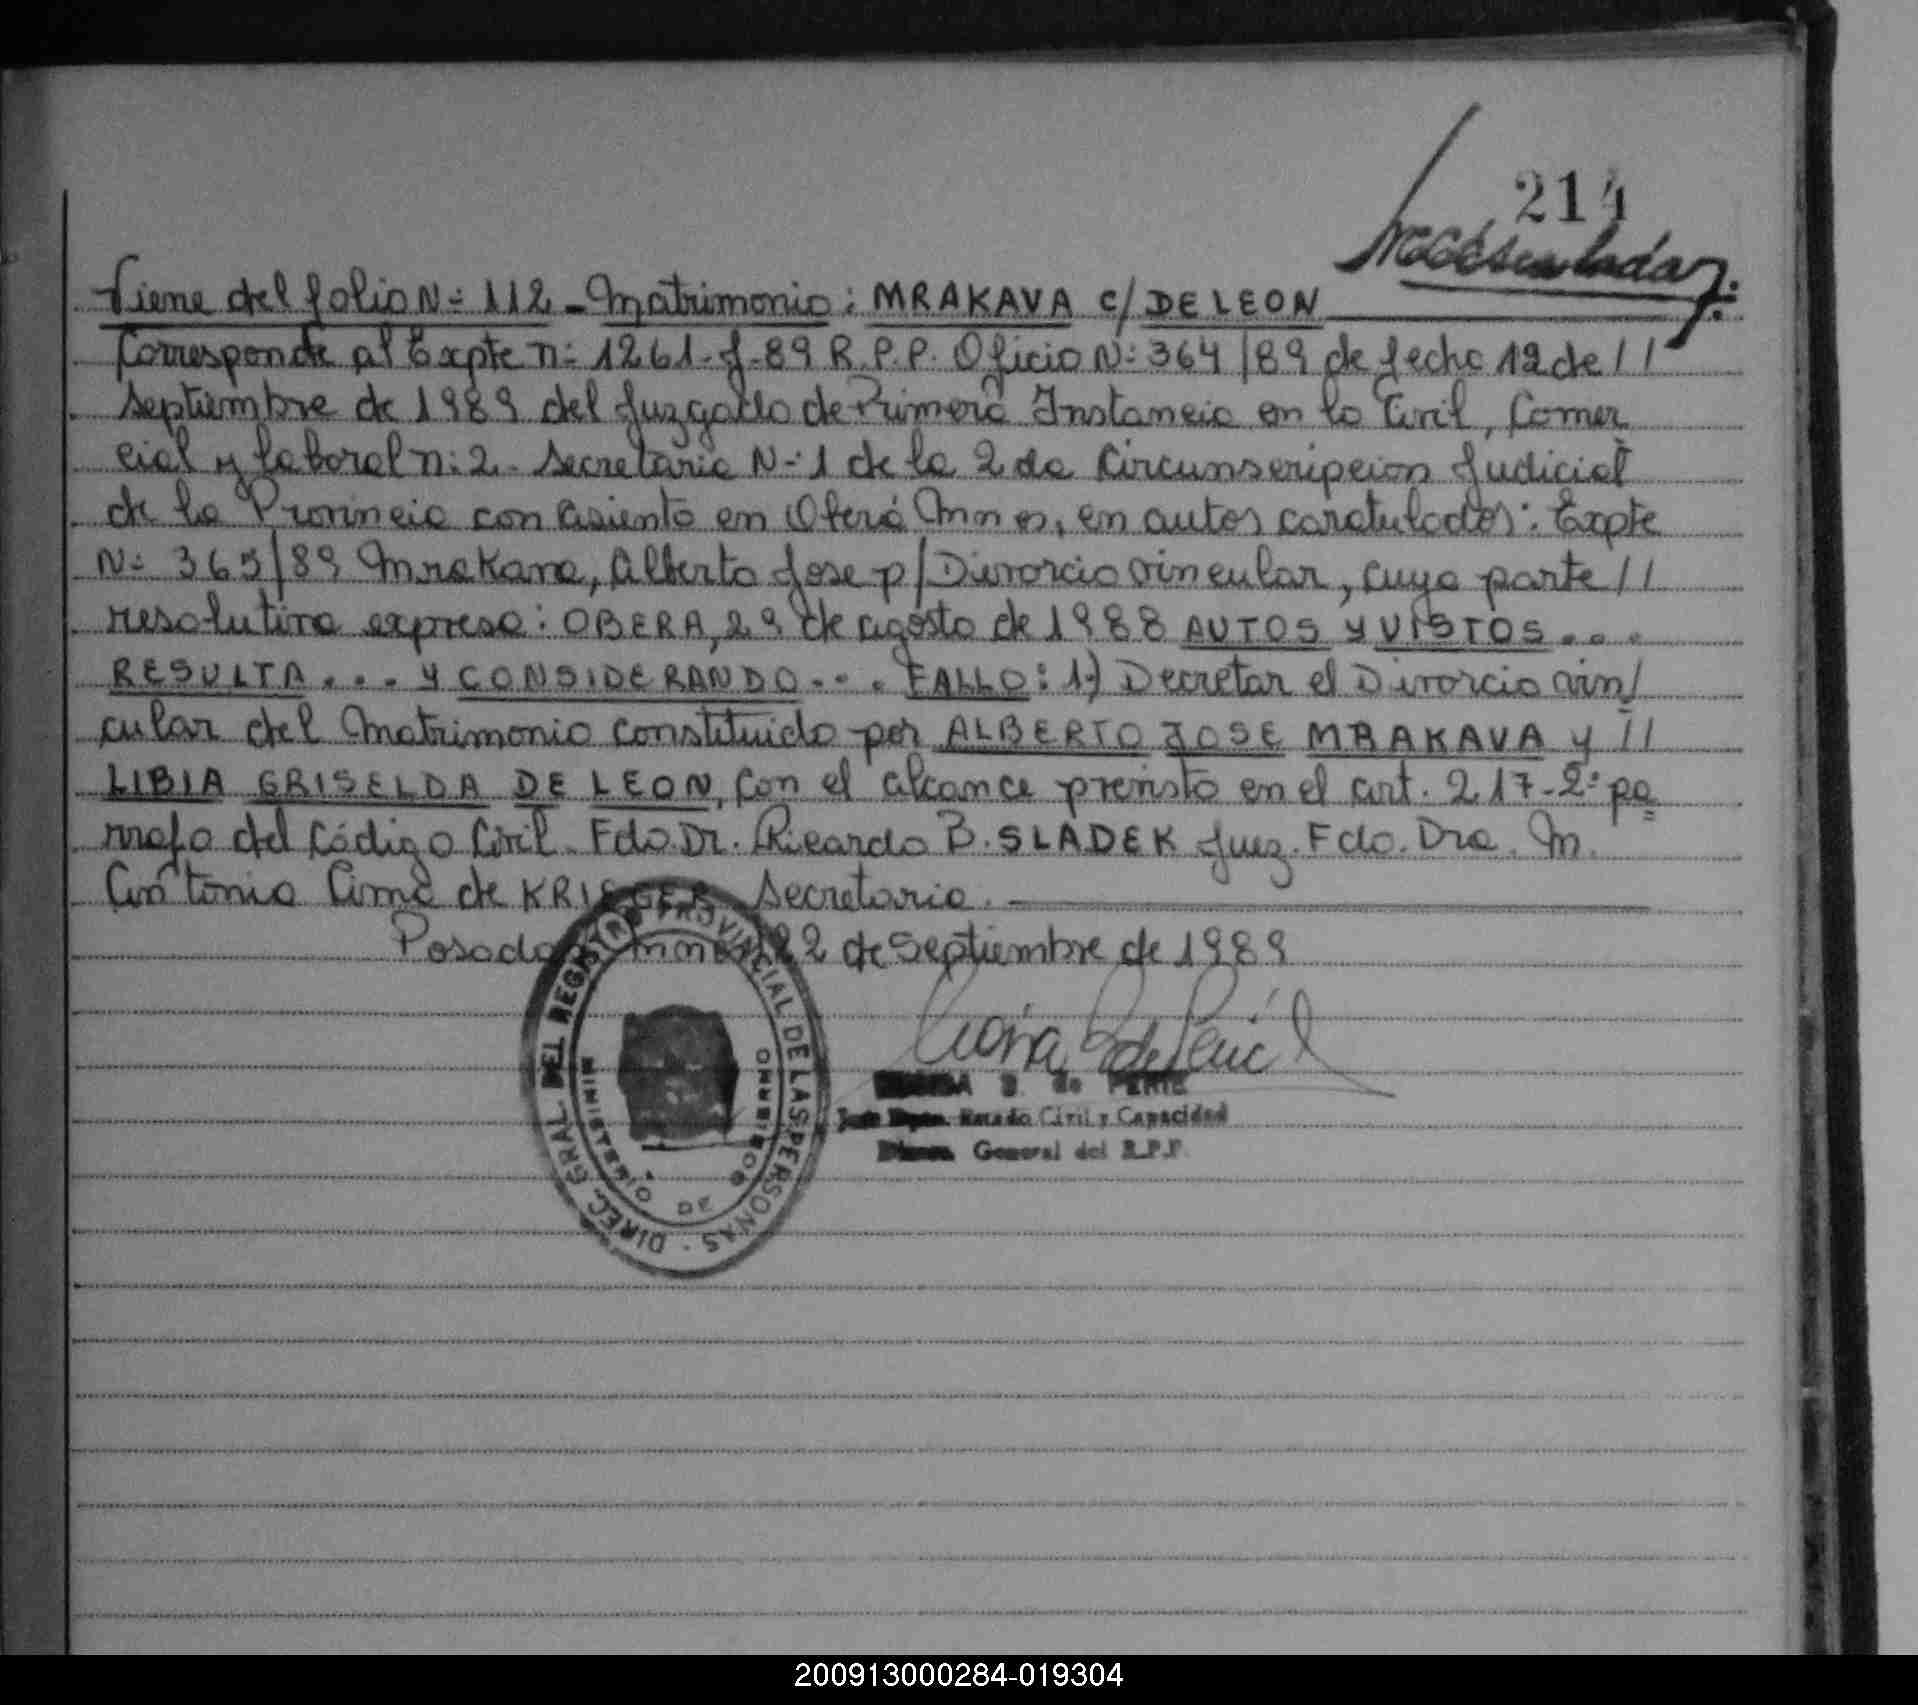 214
Viene del folio N= 112 - Matrimonio: MRAKAVA c/ DE LEON
Corresponde al Expte n= 1261-J-89 R.P.P. Oficio N= 364/89 de fecha 12 de //
Septiembre de 1989 del Juzgado de Primera Instancia en lo Civil, Comer
cial y laboral n: 2 - Secretaria N=1 de la 2da Circunscripcion Judicial
de la Provincia con asiento en Oberá Mnes, en autos caratulados: Expte
N= 365/89 Mrakava, Alberto Jose p/ Divorcio vincular, cuya parte //
resolutiva expresa: OBERA, 29 de agosto de 1988 AUTOS y VISTOS...
RESULTA... y CONSIDERANDO... FALLO: 1-) Decretar el Divorcio vin/
cular del Matrimonio constituido por ALBERTO JOSE MRAKAVA y //
LIBIA GRISELDA DE LEON, con el alcance previsto en el art. 217-2º pa
rrafo del Código Civil. Fdo. Dr. Ricardo B. SLADEK Juez. Fdo. Dra. M.
Antonia Cima de KRIEGER Secretaria.
Posadas Mnes 22 de Septiembre de 1989
B. de PERIE
Estado Civil y Capacidad
General del R.P.P.
DIREC. GRAL. DEL REGISTRO PROVINCIAL DE LAS PERSONAS
MINISTERIO DE GOBIERNO
200913000284-019304